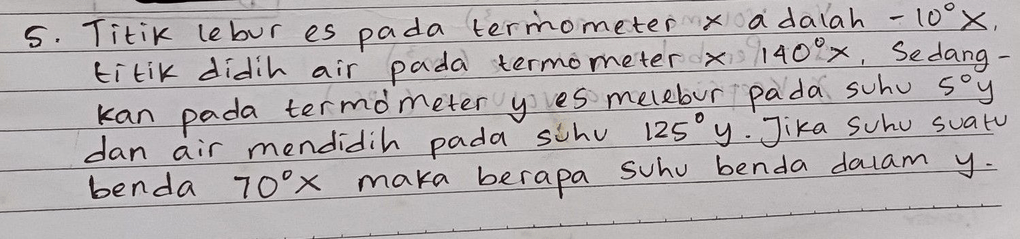 5. Titik lebur es pada termometer x adalah -10°X,
titik didih air pada termometer x 140°X, Sedang-
kan pada termometer y es melebur pada suhu 5°y
dan air mendidih pada suhu 125°y. Jika suhu suatu
benda 70°X maka berapa suhu benda dalam y.